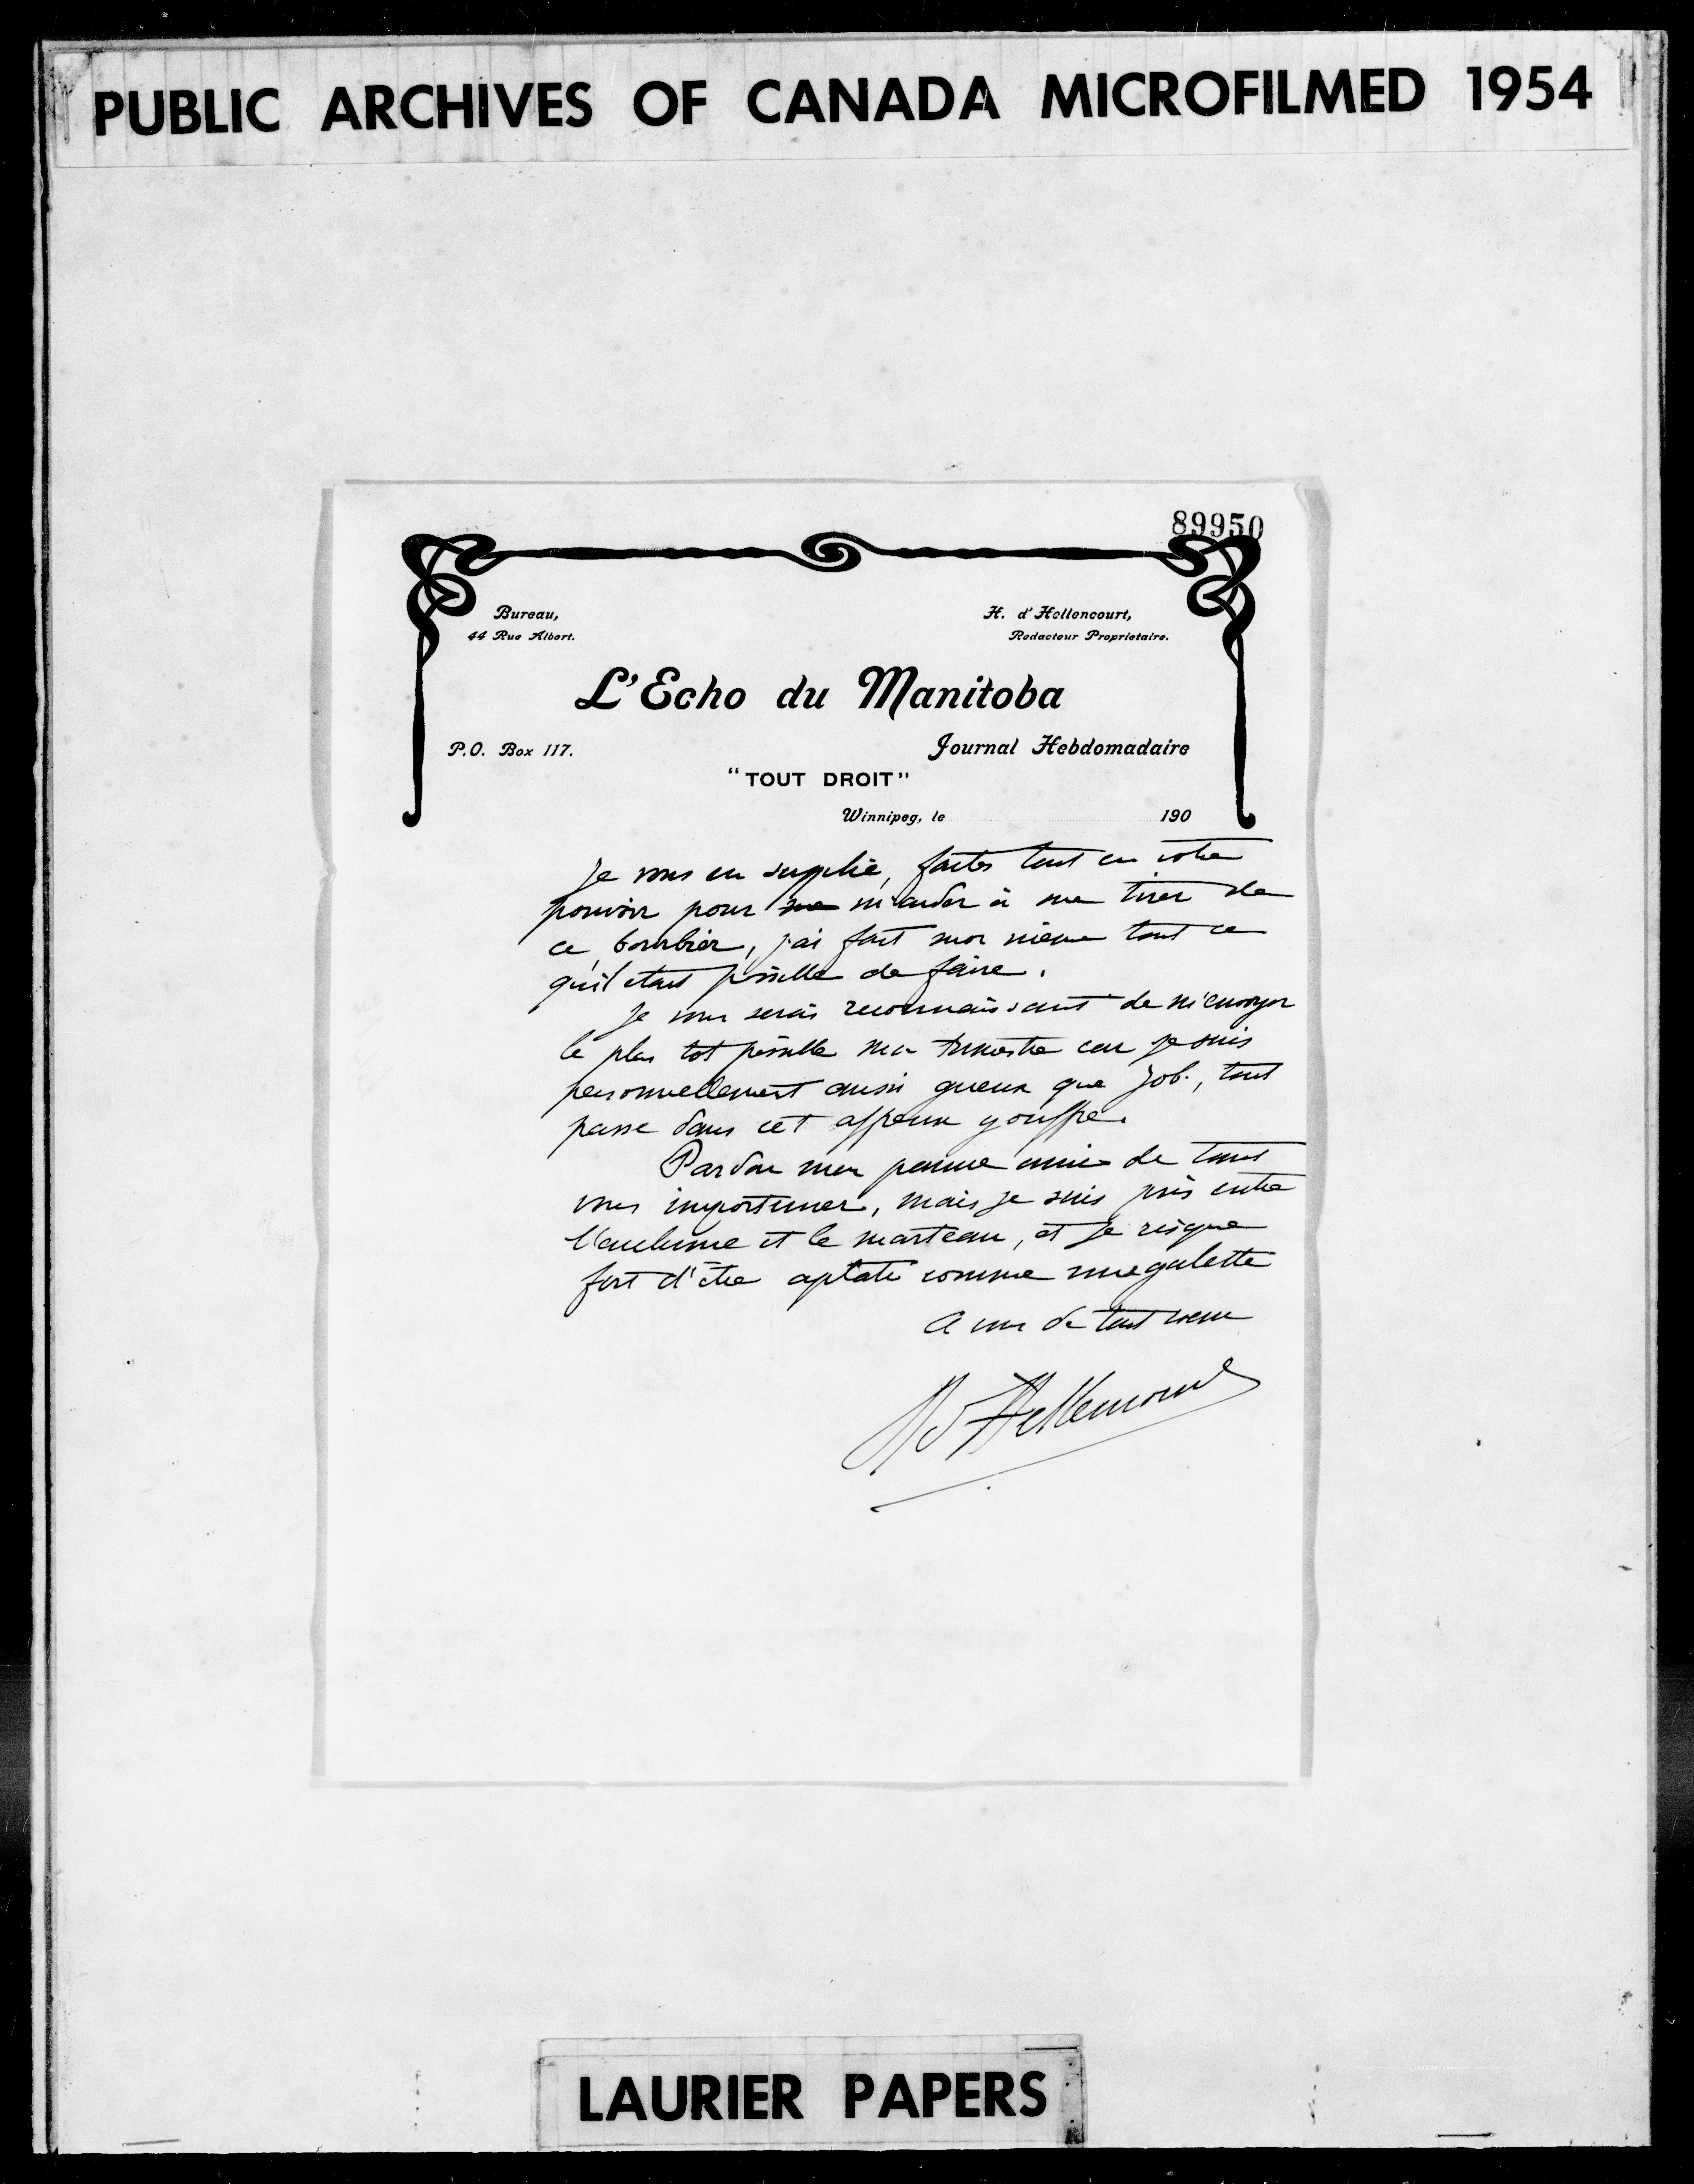 PUBLIC ARCHIVES OF CANADA MICROFILMED 1954
89950
Bureau,
44 Rue Albert.
H. d'Hellencourt,
Redacteur Proprietaire.
L'Echo du Manitoba
P.O. Box 117.
Journal Hebdomadaire
"TOUT DROIT"
Winnipeg, le 190
Je vous en supplie, faites tout en votre
pouvoir pour me m'aider à me tirer de
ce bourbier, j'ai fait moi même tout ce
qu'il etait possible de faire.
Je vous serais reconnaissant de m'envoyer
le plus tot possible mon trimestre car je suis
personnellement aussi gueux que Job, tout
passe dans cet affreux gouffre.
Pardon mon pauvre ami de tant
vous importuner, mais je suis pris entre
l'enclume et le marteau, et je risque
fort d'être aplati comme une galette
A vous de tout coeur
H d'Hellencourt
LAURIER PAPERS